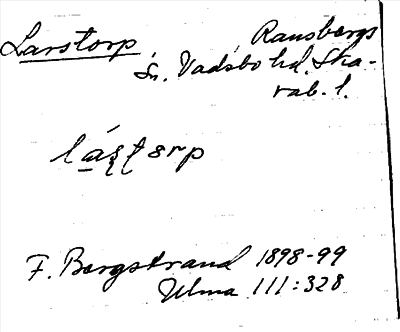 Larstorp Ransbergs
sn. Vadsbo hd. Ska-
rab. l.
F. Bergstrand 1898-99
Ulma 111:328